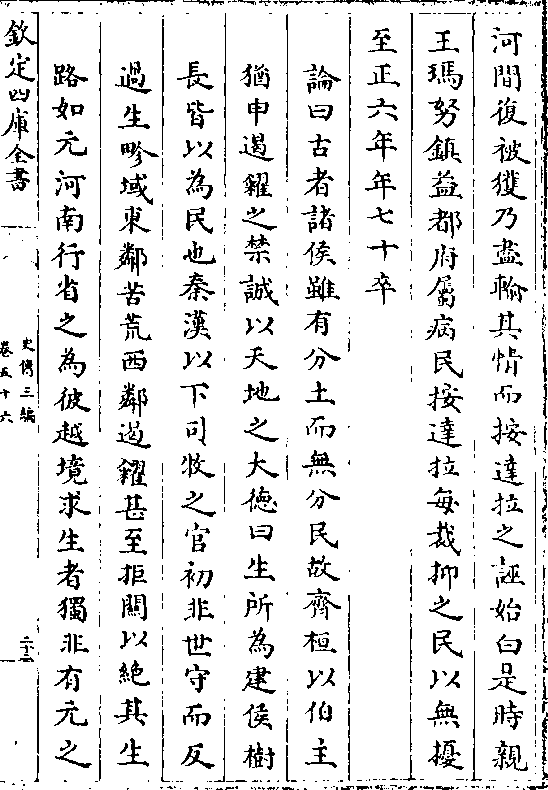 河間復被獲乃盡輸其情而按達拉之誣始白是時親
王瑪努鎮益都府屬病民按達拉每裁抑之民以無擾
至正六年年七十卒
論曰古者諸侯雖有分土而無分民故齊桓以伯主
猶申遏糴之禁誠以天地之大德曰生所為建侯樹
長皆以為民也秦漢以下司牧之官初非世守而反
過生畛域東鄰苦荒西鄰遏糴甚至拒關以絶其生
路如元河南行省之為彼越境求生者獨非有元之
欽定四庫全書
史傳三編
卷五十六
二十二